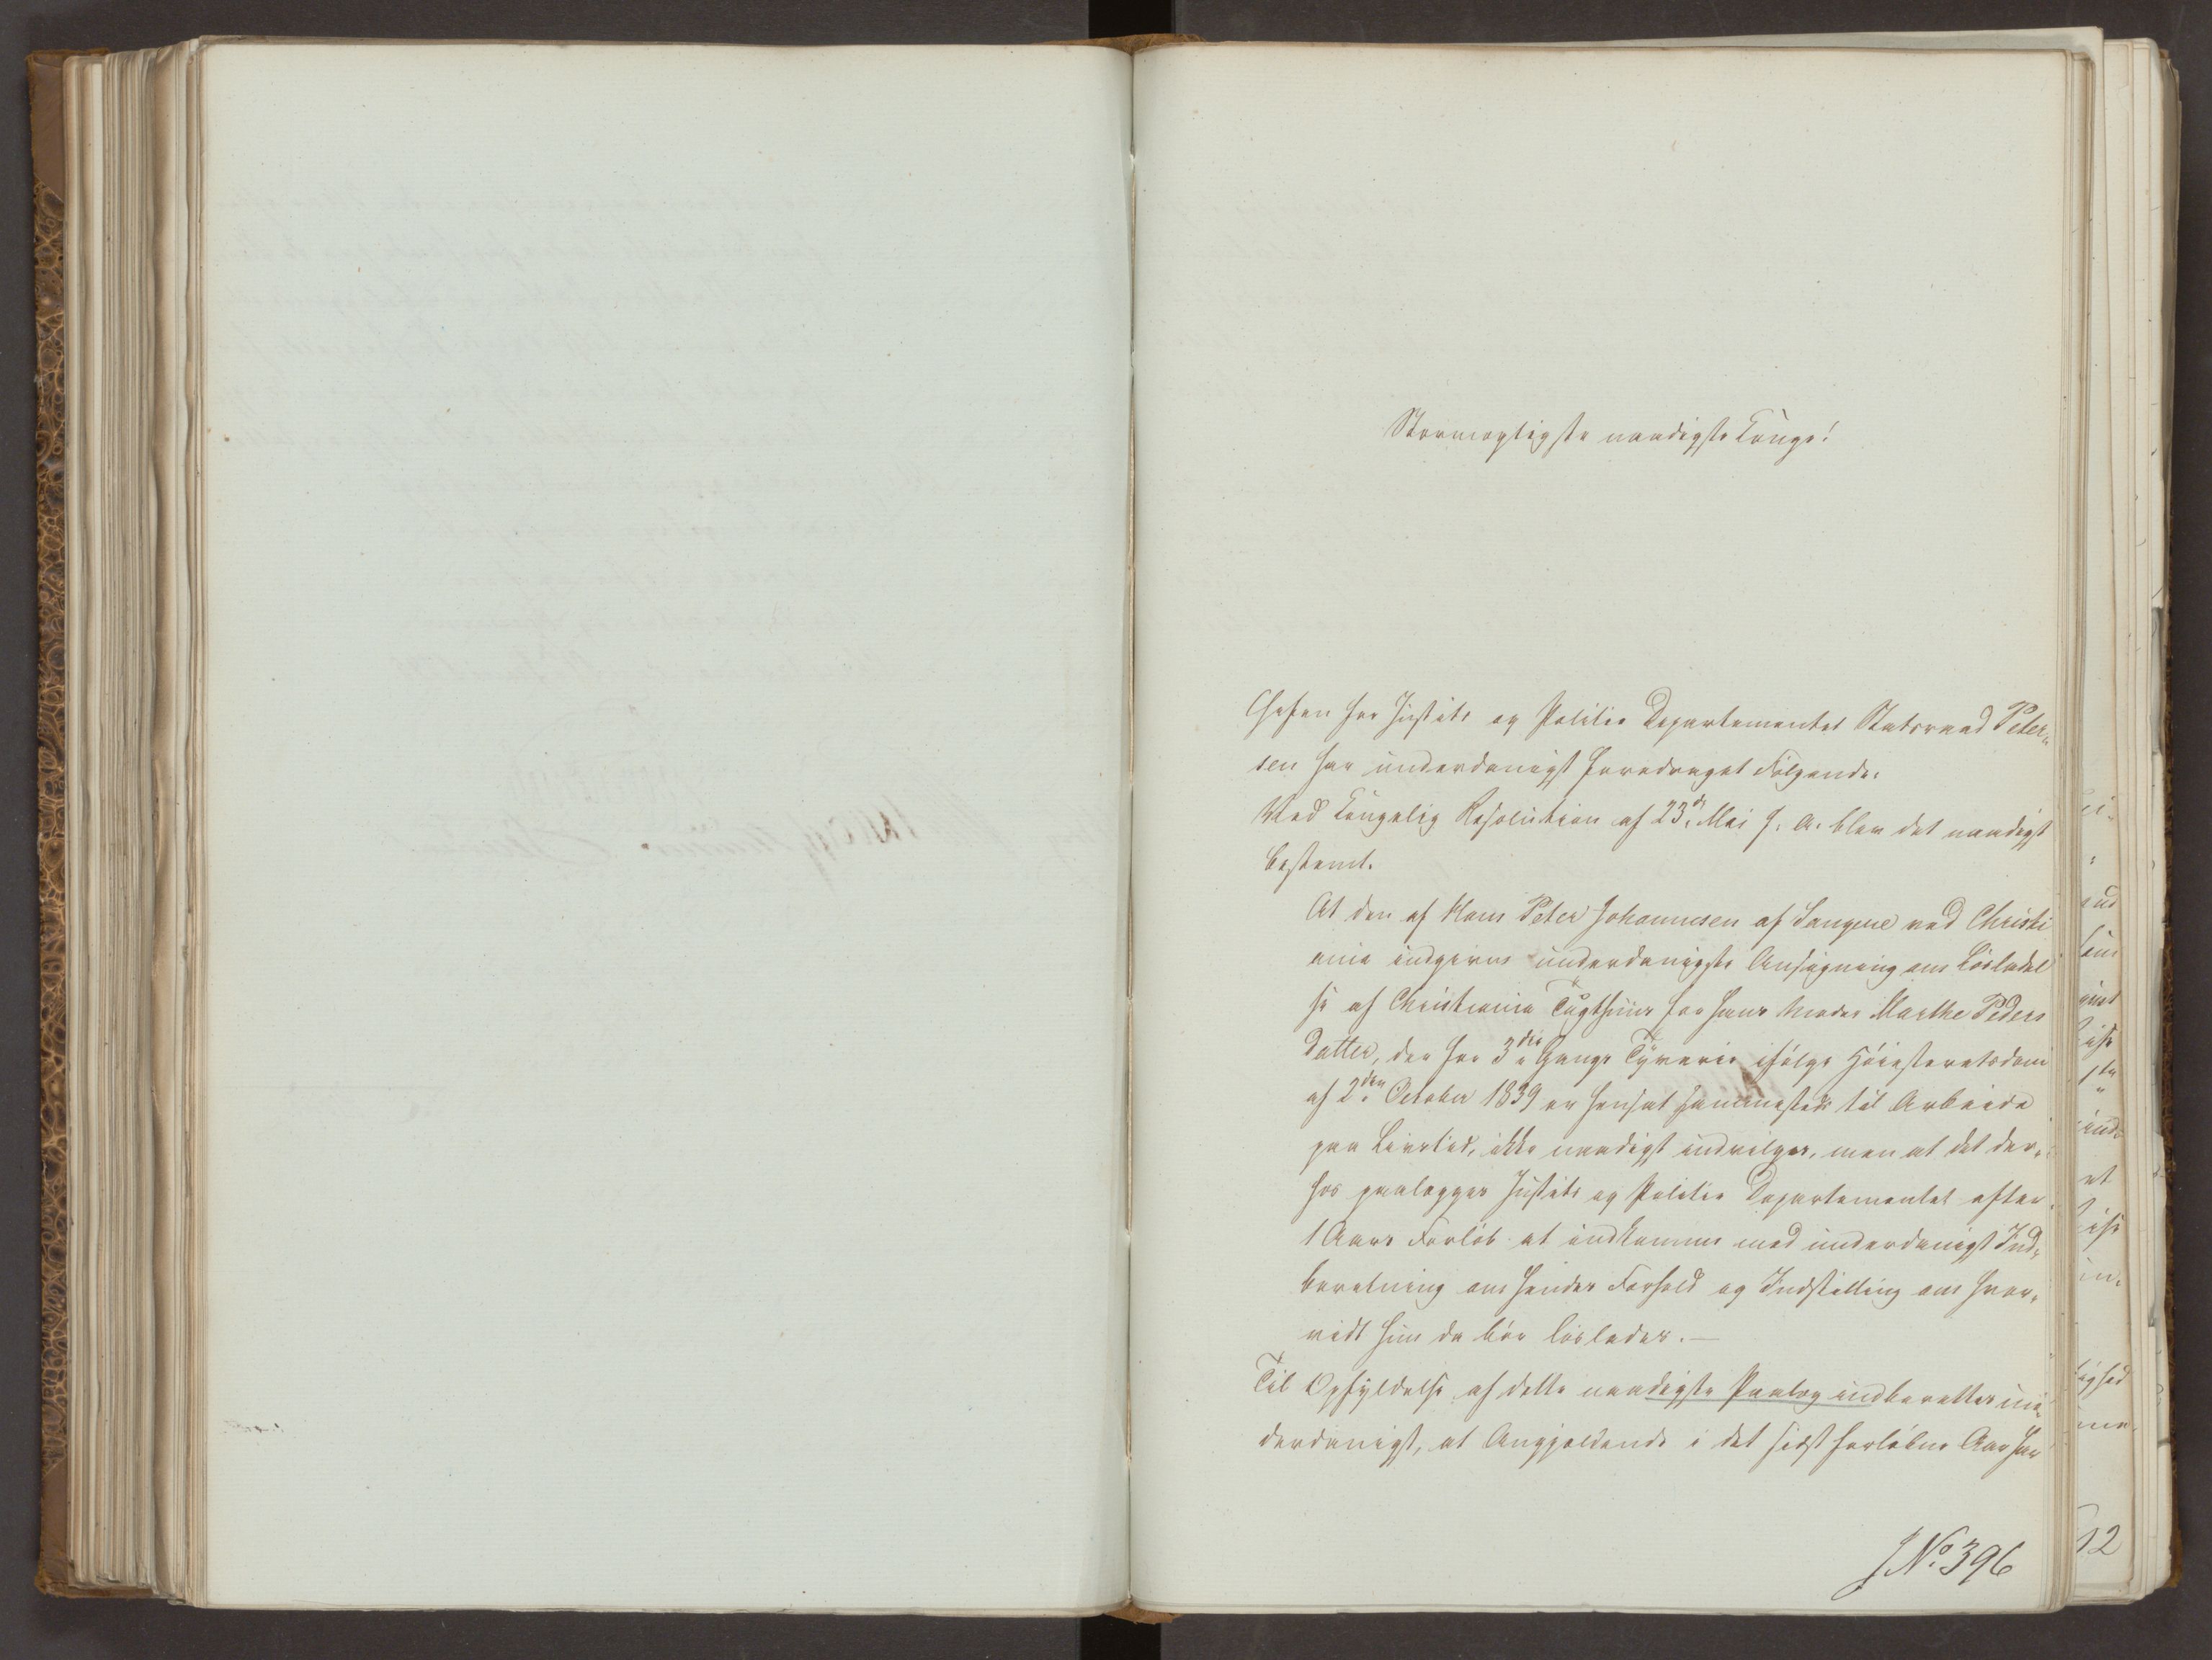 Stormægtigste naadigste Konge!
Chefen for Justits og Politie Departementet Statsraad Peter„
sen har underdanigst foredraget Følgende:
Ved Kongelig Resolution af 23d. Mai f. A. blev det naadigst
bestemt:
At den af Hans Peter Johannesen af Langene ved Christi
ania indgivne underdanigste Ansøgning om Løsladel
se af Christiania Tugthuus for hans Moder Marthe Peders
datter, der for 3die Gangs Tyverie ifølge Høiesteretsdom
af 2den October 1839 er hensat sammesteds til Arbeide
paa Livstid, ikke naadigst indvilges, men at det der„
hos paalægges Justits og Politie Departementet efter
1 Aars Forløb at indkomme med underdanigst Ind„
beretning om hendes Forhold og Indstilling om hvor„
vidt hun da bør løslades.—
Til Opfyldelse af dette naadigste Paalæg indberettes un„
derdanigst, at Angjældende i det sidst forløbne Aar har
J No. 396